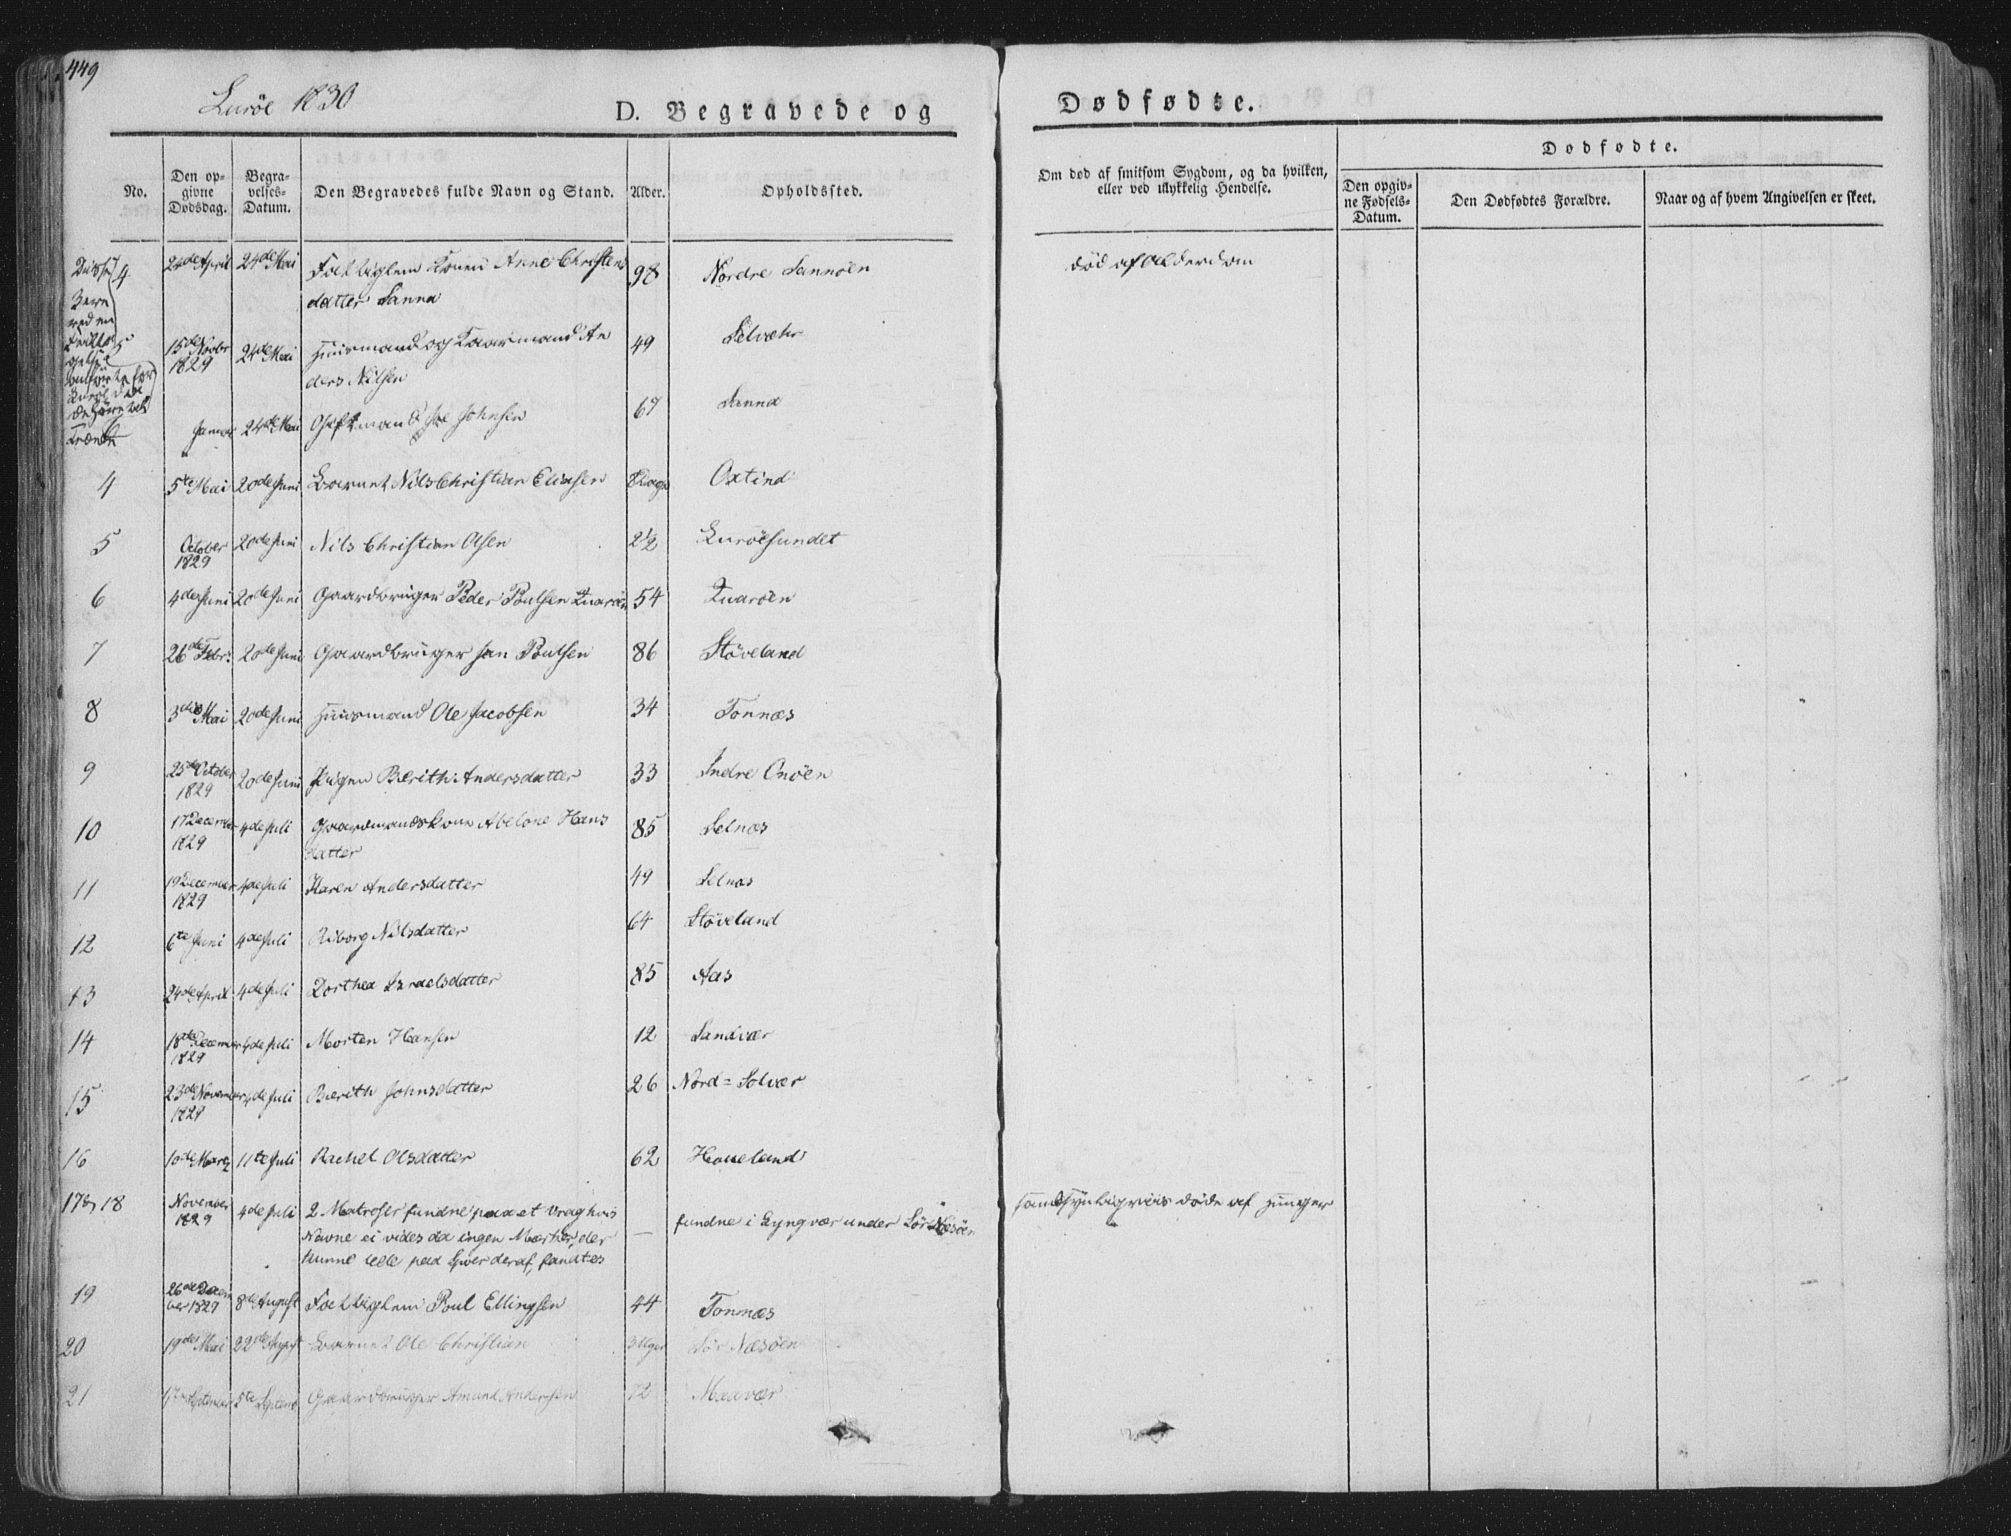 449
Lurøe 1830
D. Begravede og
Dødfødte.
No.
Den op-
givne
Dødsdag.
Begra-
velses-
Datum.
Den Begravedes fulde Navn og Stand.
Alder.
Opholdssted.
Om død af smitsom Sygdom, og da hvilken,
eller ved ulykkelig Hendelse.
Dødfødte.
Den opgiv-
ne Fødsels-
Datum.
Den Dødfødtes Forældre.
Naar og af hvem Angivelsen er skeet.
4 24de April 24de Mai Fattiglem Anne Christens 98 Nordre Sannøen død af Alderdom
datter Sanna
5 15de Novbr 24de Mai Huusmand og An 49 Selvær
1829 ders Nilsen
Januar 24de Mai Johnsen 67 Sanna
4 5te Mai 20de Juni Barnet Nils Christian Eliasen 8 Dage Oxtind
5 October 20de Juni Nils Christian Olsen 2½ Lurøesundet
1829
6 4de Juni 20de Juni Gaardbruger Peder Poulsen Quarøen 54 Quarøen
7 26de Febr. 20de Juni Gaardbruger Jan Poulsen 86 Støveland
8 3die Mai 20de Juni Huusmand Ole Jacobsen 34 Tonnæs
9 25de October 20de Juni Pigen Berith Andersdatter 33 Indre Onøen
1829
10 17 December 4de Juli Gaardmandskone Abelone Hans 85 Selnæs
1829 datter
11 19 December 4de Juli Karen Andersdatter 49 Selnæs
1829
12 6te Juni 4de Juli Riborg Nilsdatter 64 Støveland
13 24de April 4de Juli Dorthea Israelsdatter 85 Aas
14 18de December 4de Juli Morten Hansen 12 Sandvær
1829
15 23de November 4de Juli Berith Johnsdatter 26 Nord=Solvær
1829
16 10de Marz 11te Juli Rachel Olsdatter 62 Haveland
17 og 18 November 4de Juli 2 Matroser fundne paa et Vrag hvis — fundne i Lyngvær under Sør Næsøen sandsynligviis døde af Hunger
1829 Navne ei vides da ingen Mærker, der
kunne lede paa Spoer deraf, fandtes
19 26de Decem 8de August Fattiglem Poul Ellingsen 44 Tonnæs
ber 1829
20 19de Mai 22de August Barnet Ole Christian 3 Uger Sør Næsøen
21 5te Septemb Gaardbruger Amund Andersen 72 Maavær